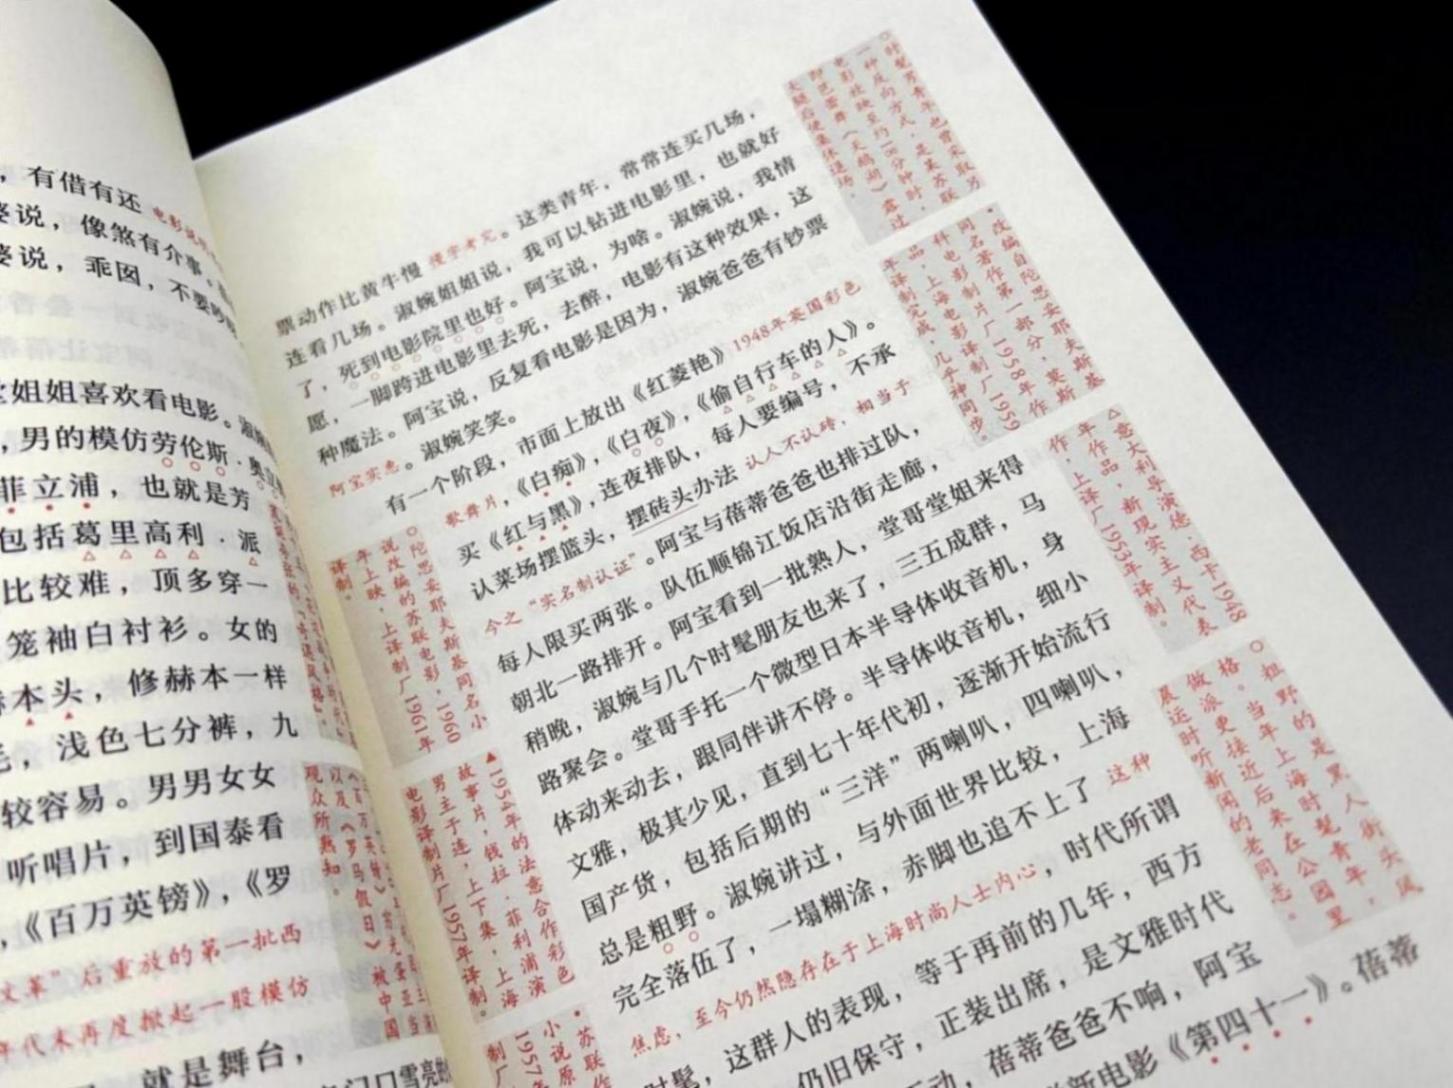 ，有借有还
婆说，像煞有介事
婆说，乖囡，不要吵
堂姐姐喜欢看电影。淑婉
，男的模仿劳伦斯·奥立
菲立浦，也就是芳
包括葛里高利·派
比较难，顶多穿一
笼袖白衬衫。女的
赫本头，修赫本一样
毛，浅色七分裤，九
较容易。男男女女
听唱片，到国泰看
，《百万英镑》，《罗
文革”后重放的第一批西
年代末再度掀起一股模仿
就是舞台，
门口雪亮
《百万英镑》
以及《罗马假日》被中国
观众所熟知。
票动作比黄牛慢 慢字考究。这类青年，常常连买几场，
连看几场。淑婉姐姐说，我可以钻进电影里，也就好
了，死到电影院里也好。阿宝说，为啥。淑婉说，我情
愿，一脚跨进电影里去死，去醉，电影有这种效果，这
种魔法。阿宝说，反复看电影是因为，淑婉爸爸有钞票
阿宝实惠。淑婉笑笑。
有一个阶段，市面上放出《红菱艳》1948年英国彩色
歌舞片，《白痴》，《白夜》，《偷自行车的人》。
买《红与黑》，连夜排队，每人要编号，不承
认菜场摆篮头，摆砖头办法 认人不认砖，相当于
今之“实名制认证”。阿宝与蓓蒂爸爸也排过队，
每人限买两张。队伍顺锦江饭店沿街走廊，
朝北一路排开。阿宝看到一批熟人，堂哥堂姐来得
稍晚，淑婉与几个时髦朋友也来了，三五成群，马
路聚会。堂哥手托一个微型日本半导体收音机，身
体动来动去，跟同伴讲不停。半导体收音机，细小
文雅，极其少见，直到七十年代初，逐渐开始流行
国产货，包括后期的“三洋”两喇叭，四喇叭，
总是粗野。淑婉讲过，与外面世界比较，上海
完全落伍了，一塌糊涂，赤脚也追不上了 这种
焦虑，至今仍然隐存在于上海时尚人士内心，时代所谓
时髦，这群人的表现，等于再前的几年，西方
仍旧保守，正装出席，是文雅时代
动，蓓蒂爸爸不响，阿宝
新电影《第四十一》。蓓蒂
○时髦男青年也曾采取另
一种反向方式，是某苏联
电影放映至约18分钟时，
即芭蕾舞《天鹅湖》震过
大腿后便集体退场。
•改编自陀思妥耶夫斯基
同名著作第一部分，莫斯
科电影制片厂1958年作
品，上海电影译制厂1959
年译制完成，几乎神同步。
△意大利导演德·西卡1948
年作品，新现实主义代表
作，上译厂1953年译制。
○粗野的是黑人街头风
格。当年上海时髦青年，
做派更接近后来在公园里
晨运时听新闻的老同志。
○陀思妥耶夫斯基同名小
说改编的苏联电影，1960
年上映，上译制厂1961年
译制。
▲1954年的法意合作彩色
故事片，钱拉·菲利浦演
男主于连，上下集，上海
电影译制片厂1957年译制。
•苏联作
小说原
1957
制厂